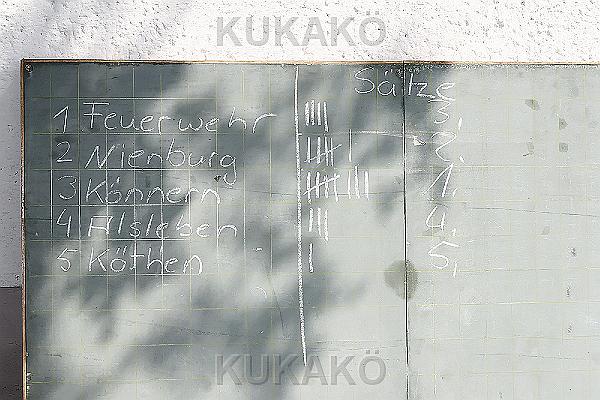 KUKAKÖ
Sätze
1 Feuerwehr |||| 3.
2 Nienburg |||| | 2.
3 Könnern |||| |||| 1.
4 Alsleben ||| 4.
5 Köthen | 5.
KUKAKÖ